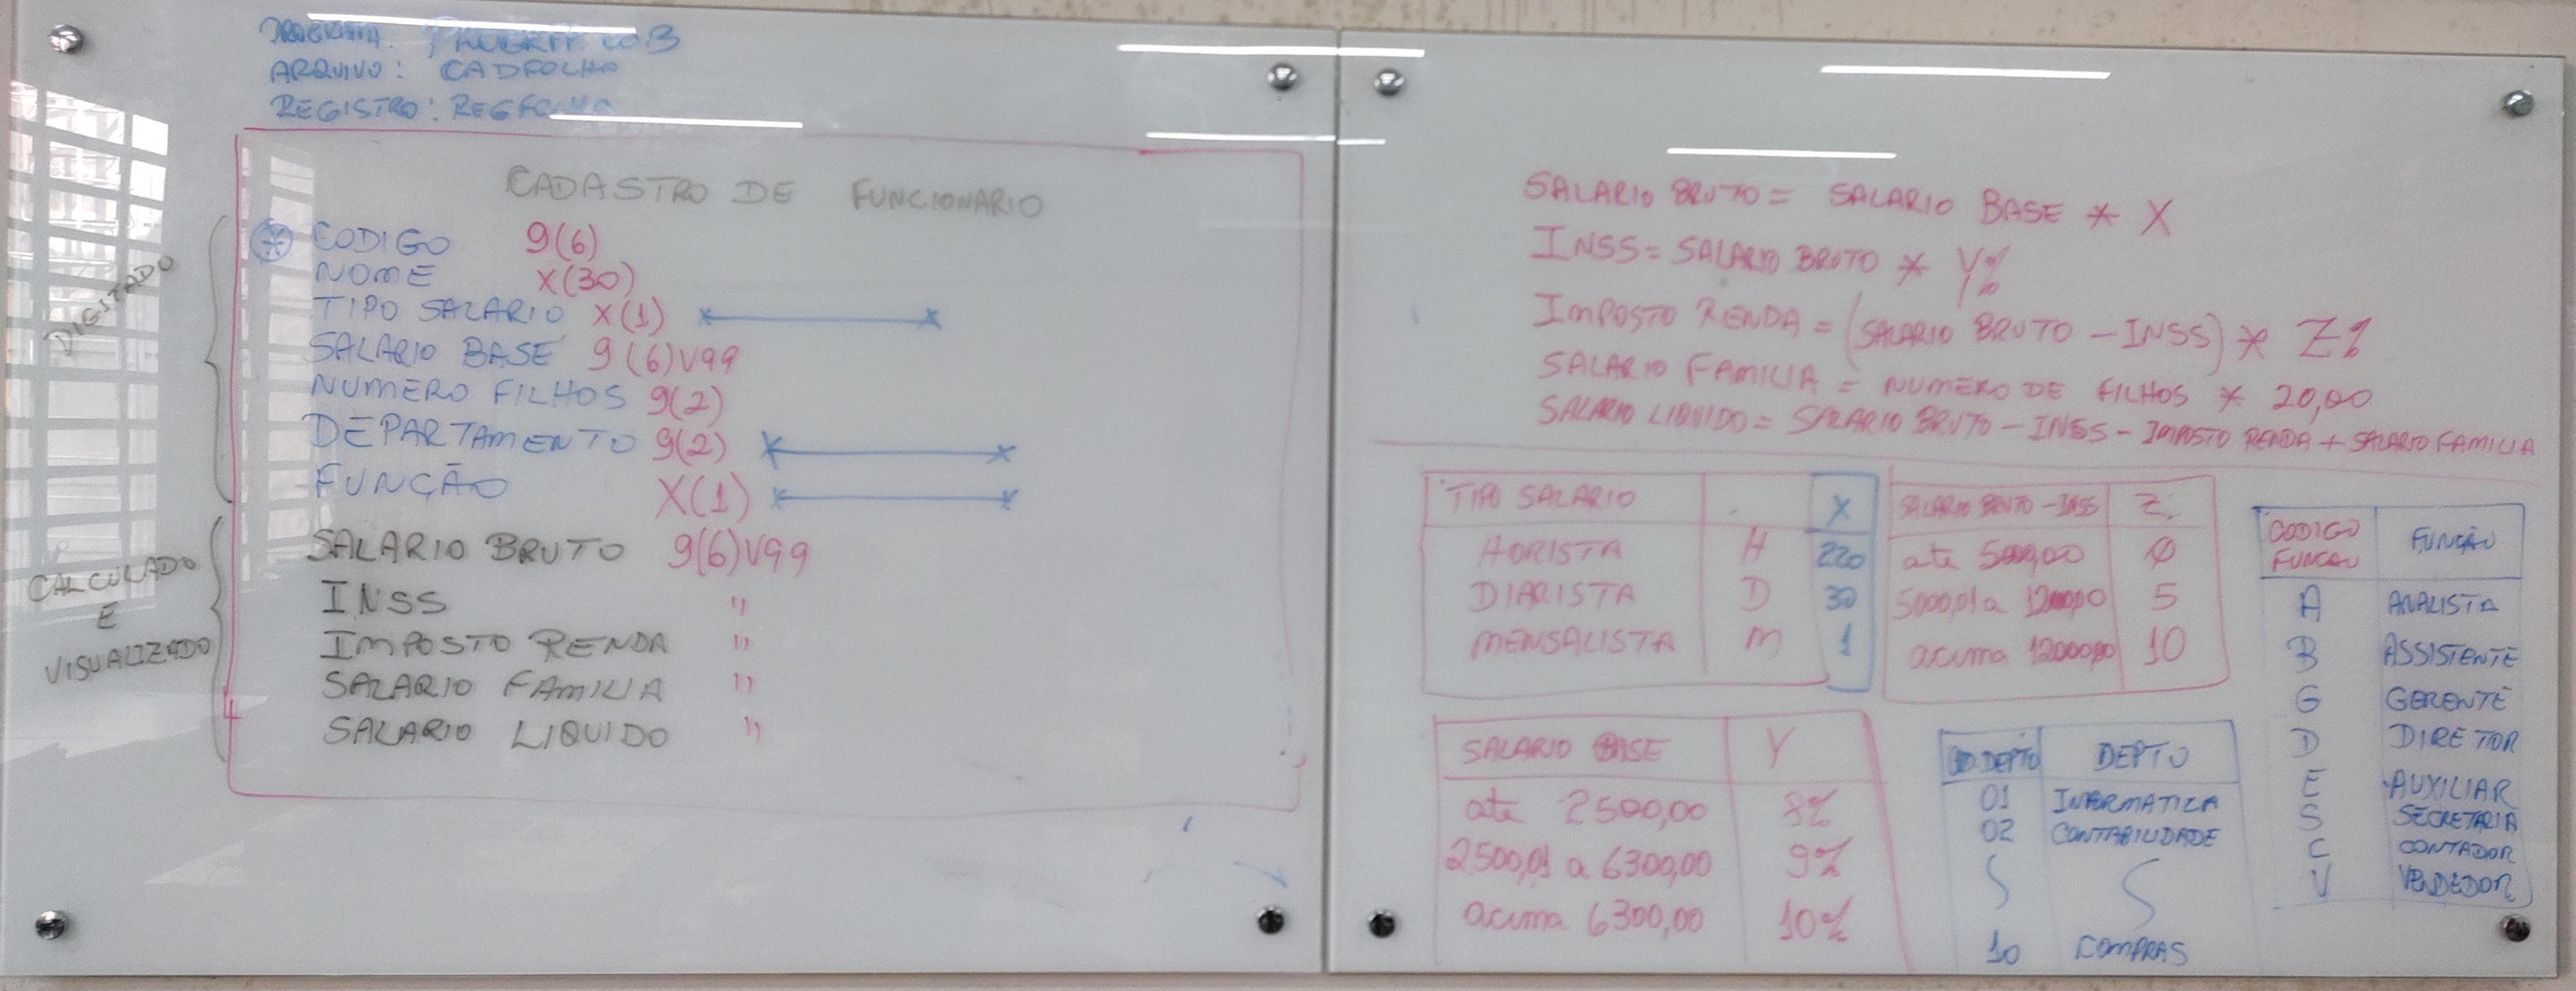 PROGRAMA:
ARQUIVO: CADFOLHA
REGISTRO: REGFOLHA
CADASTRO DE FUNCIONARIO
DIGITADO
* CODIGO 9(6)
NOME X(30)
TIPO SALARIO X(1)
SALARIO BASE 9(6)V99
NUMERO FILHOS 9(2)
DEPARTAMENTO 9(2)
FUNÇÃO X(1)
CALCULADO
E
VISUALIZADO
SALARIO BRUTO 9(6)V99
INSS "
IMPOSTO RENDA "
SALARIO FAMILIA "
SALARIO LIQUIDO "
SALARIO BRUTO = SALARIO BASE * X
INSS = SALARIO BRUTO * Y%
IMPOSTO RENDA = (SALARIO BRUTO - INSS) * Z%
SALARIO FAMILIA = NUMERO DE FILHOS * 20,00
SALARIO LIQUIDO = SALARIO BRUTO - INSS - IMPOSTO RENDA + SALARIO FAMILIA
TIPO SALARIO X
HORISTA H 220
DIARISTA D 30
MENSALISTA M 1
SALARIO BRUTO - INSS Z
ate 5000,00 0
5000,01 a 12000,00 5
acima 12000,00 10
CODIGO FUNCAO FUNÇÃO
A ANALISTA
B ASSISTENTE
G GERENTE
D DIRETOR
E AUXILIAR
S SECRETARIA
C CONTADOR
V VENDEDOR
SALARIO BASE Y
ate 2500,00 8%
2500,01 a 6300,00 9%
acima 6300,00 10%
COD.DEPTO DEPTO
01 INFORMATICA
02 CONTABILIDADE
10 COMPRAS